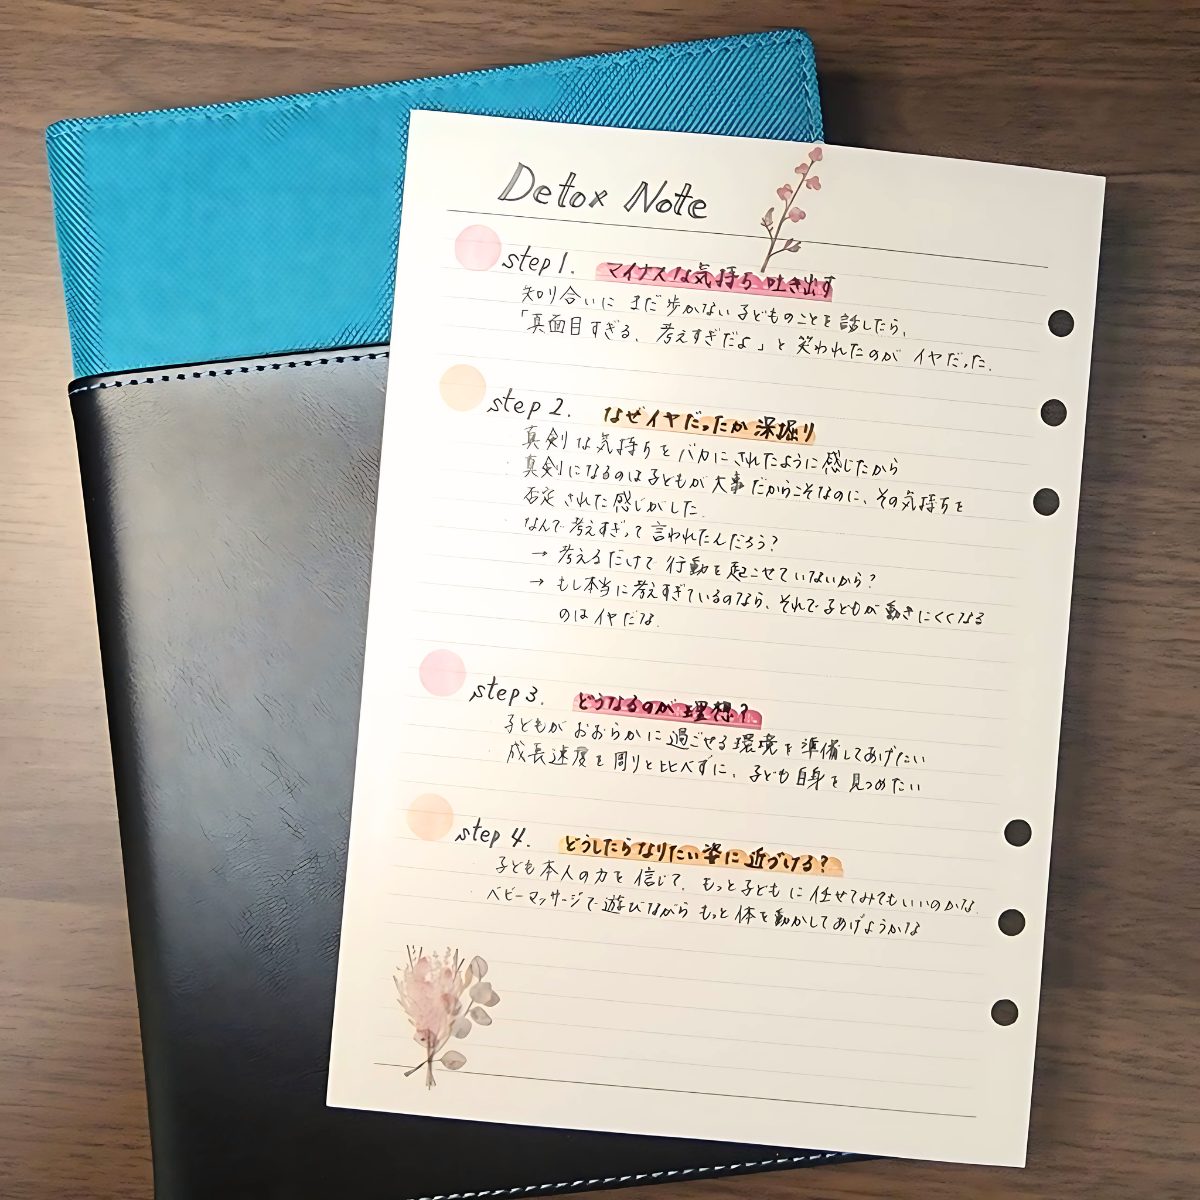 Detox Note
step 1. マイナスな気持ち 吐き出す
知り合いに まだ歩かない子どものことを話したら、
「真面目すぎる、考えすぎだよ」と笑われたのが イヤだった.
step 2. なぜイヤだったか深掘り
真剣な気持ちをバカにされたように感じたから
真剣になるのは子どもが大事だからこそなのに、その気持ちを
否定された感じがした.
なんで考えすぎって言われたんだろう?
→ 考えるだけで行動を起こせていないから?
→ もし本当に考えすぎているのなら、それで子どもが動きにくくなる
のはイヤだな.
step 3. どうなるのが理想?
子どもがおおらかに過ごせる環境を準備してあげたい
成長速度を周りと比べずに、子ども自身を見つめたい
step 4. どうしたらなりたい姿に近づける?
子ども本人の力を信じて、もっと子どもに任せてみてもいいのかな.
ベビーマッサージで遊びながらもっと体を動かしてあげようかな